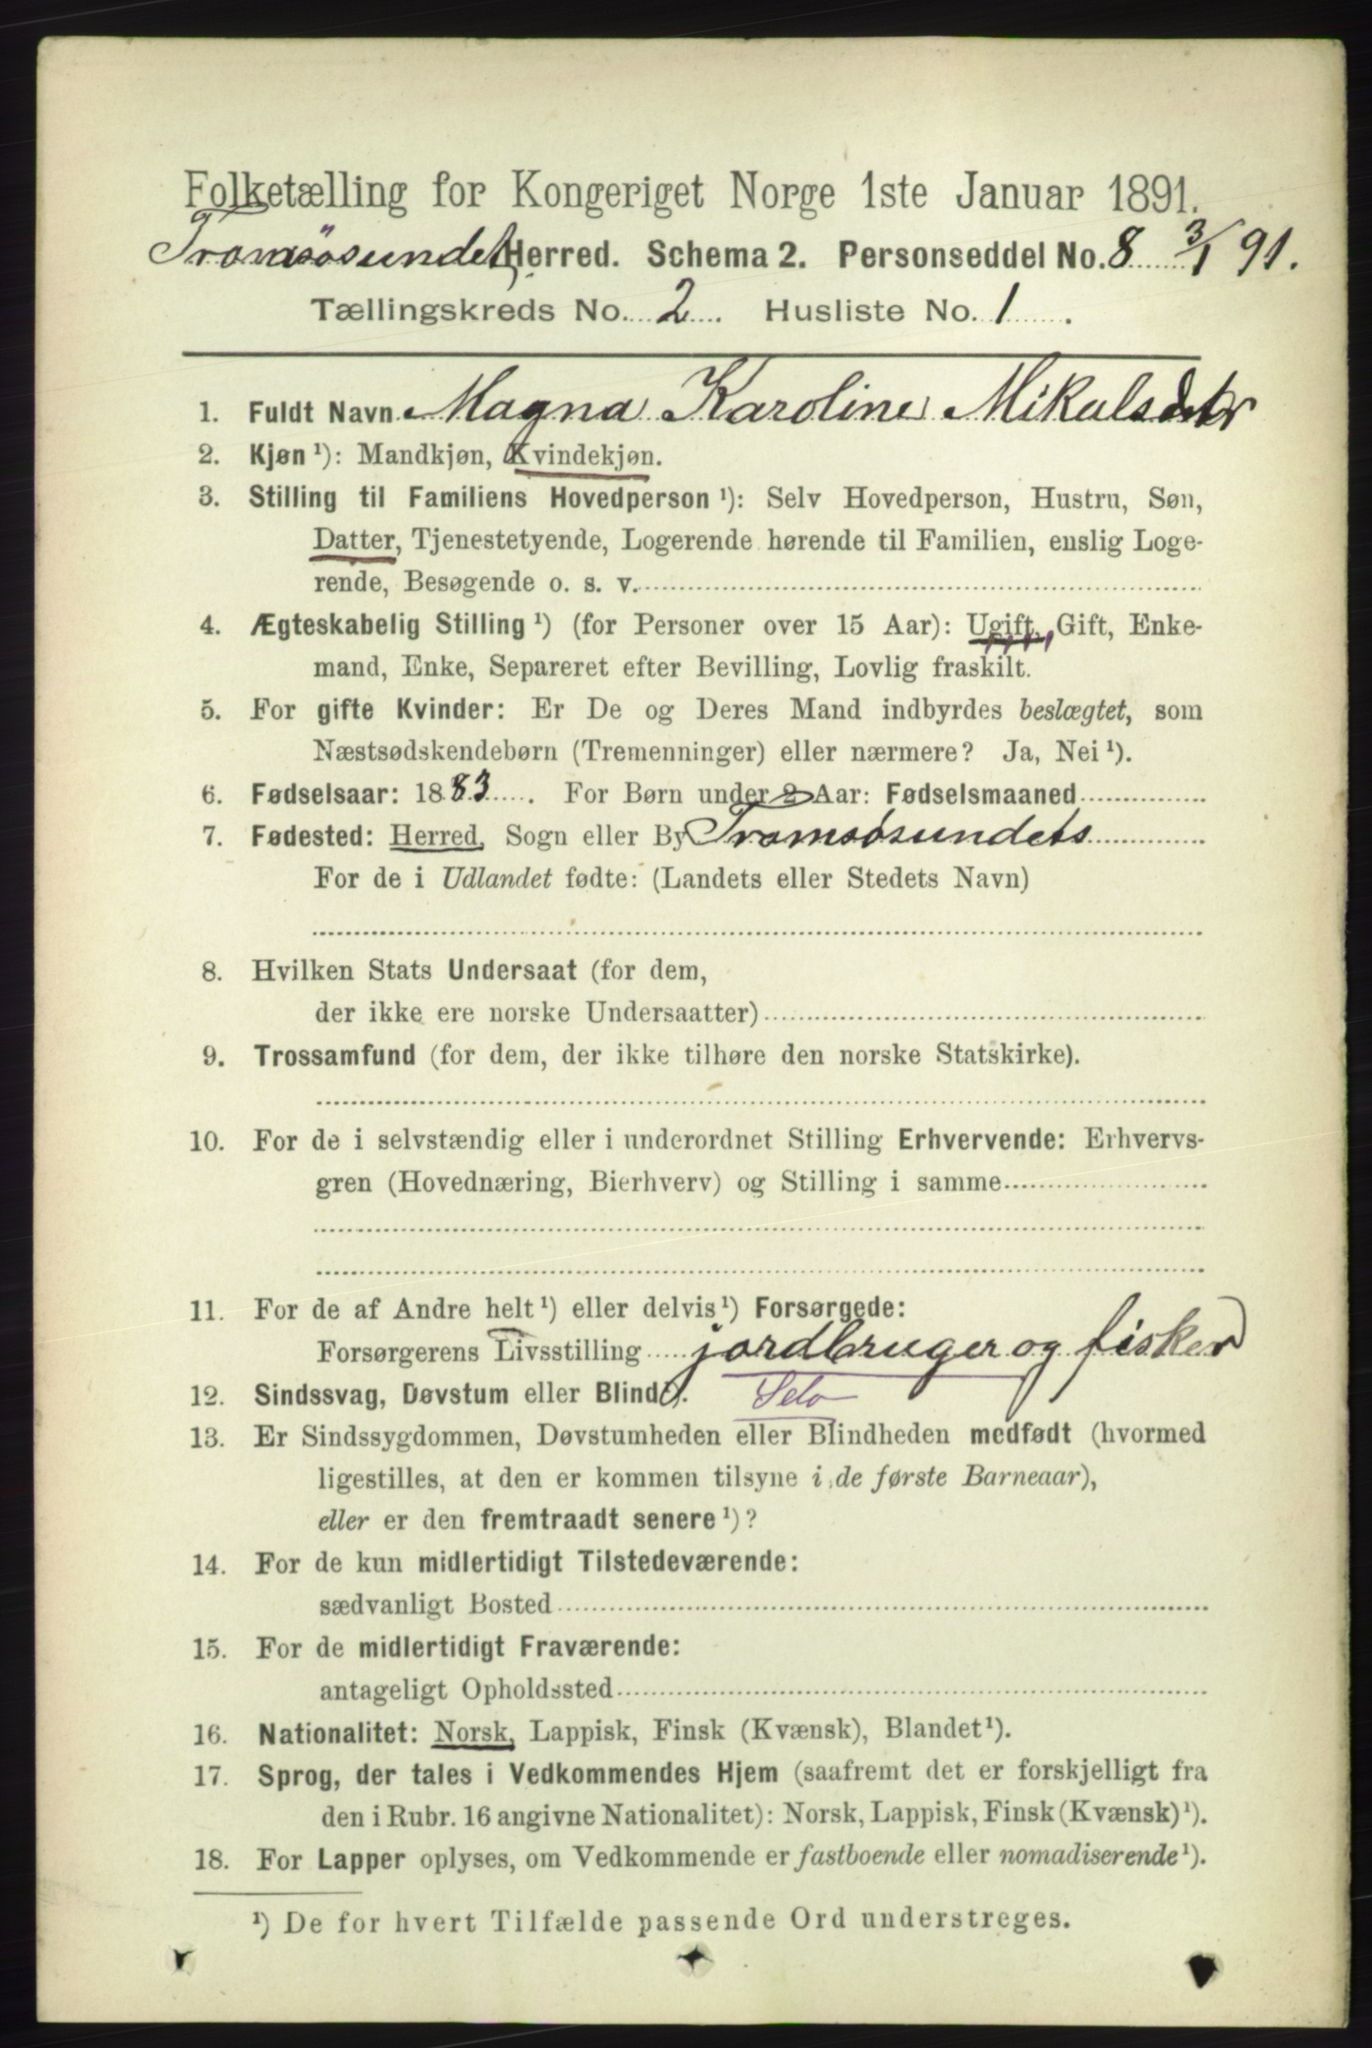 Folketælling for Kongeriget Norge 1ste Januar 1891.
Tromsøsundets Herred. Schema 2. Personseddel No. 8 3/1 91.
Tællingskreds No. 2. Husliste No. 1.
1. Fuldt Navn Magna Karoline Mikalsdatr
2. Kjøn ¹): Mandkjøn, Kvindekjøn.
3. Stilling til Familiens Hovedperson ¹): Selv Hovedperson, Hustru, Søn,
Datter, Tjenestetyende, Logerende hørende til Familien, enslig Loge-
rende, Besøgende o. s. v.
4. Ægteskabelig Stilling ¹) (for Personer over 15 Aar): Ugift, Gift, Enke-
mand, Enke, Separeret efter Bevilling, Lovlig fraskilt.
5. For gifte Kvinder: Er De og Deres Mand indbyrdes beslægtet, som
Næstsødskendebørn (Tremenninger) eller nærmere? Ja, Nei ¹).
6. Fødselsaar: 1883. For Børn under 2 Aar: Fødselsmaaned
7. Fødested: Herred, Sogn eller By Tromsøsundets
For de i Udlandet fødte: (Landets eller Stedets Navn)
8. Hvilken Stats Undersaat (for dem,
der ikke ere norske Undersaatter)
9. Trossamfund (for dem, der ikke tilhøre den norske Statskirke).
10. For de i selvstændig eller i underordnet Stilling Erhvervende: Erhvervs-
gren (Hovednæring, Bierhverv) og Stilling i samme
11. For de af Andre helt ¹) eller delvis ¹) Forsørgede:
Forsørgerens Livsstilling jordbruger og fisker
12. Sindssvag, Døvstum eller Blind. Selv
13. Er Sindssygdommen, Døvstumheden eller Blindheden medfødt (hvormed
ligestilles, at den er kommen tilsyne i de første Barneaar),
eller er den fremtraadt senere ¹)?
14. For de kun midlertidigt Tilstedeværende:
sædvanligt Bosted
15. For de midlertidigt Fraværende:
antageligt Opholdssted
16. Nationalitet: Norsk, Lappisk, Finsk (Kvænsk), Blandet ¹).
17. Sprog, der tales i Vedkommendes Hjem (saafremt det er forskjelligt fra
den i Rubr. 16 angivne Nationalitet): Norsk, Lappisk, Finsk (Kvænsk) ¹).
18. For Lapper oplyses, om Vedkommende er fastboende eller nomadiserende ¹).
¹) De for hvert Tilfælde passende Ord understreges.